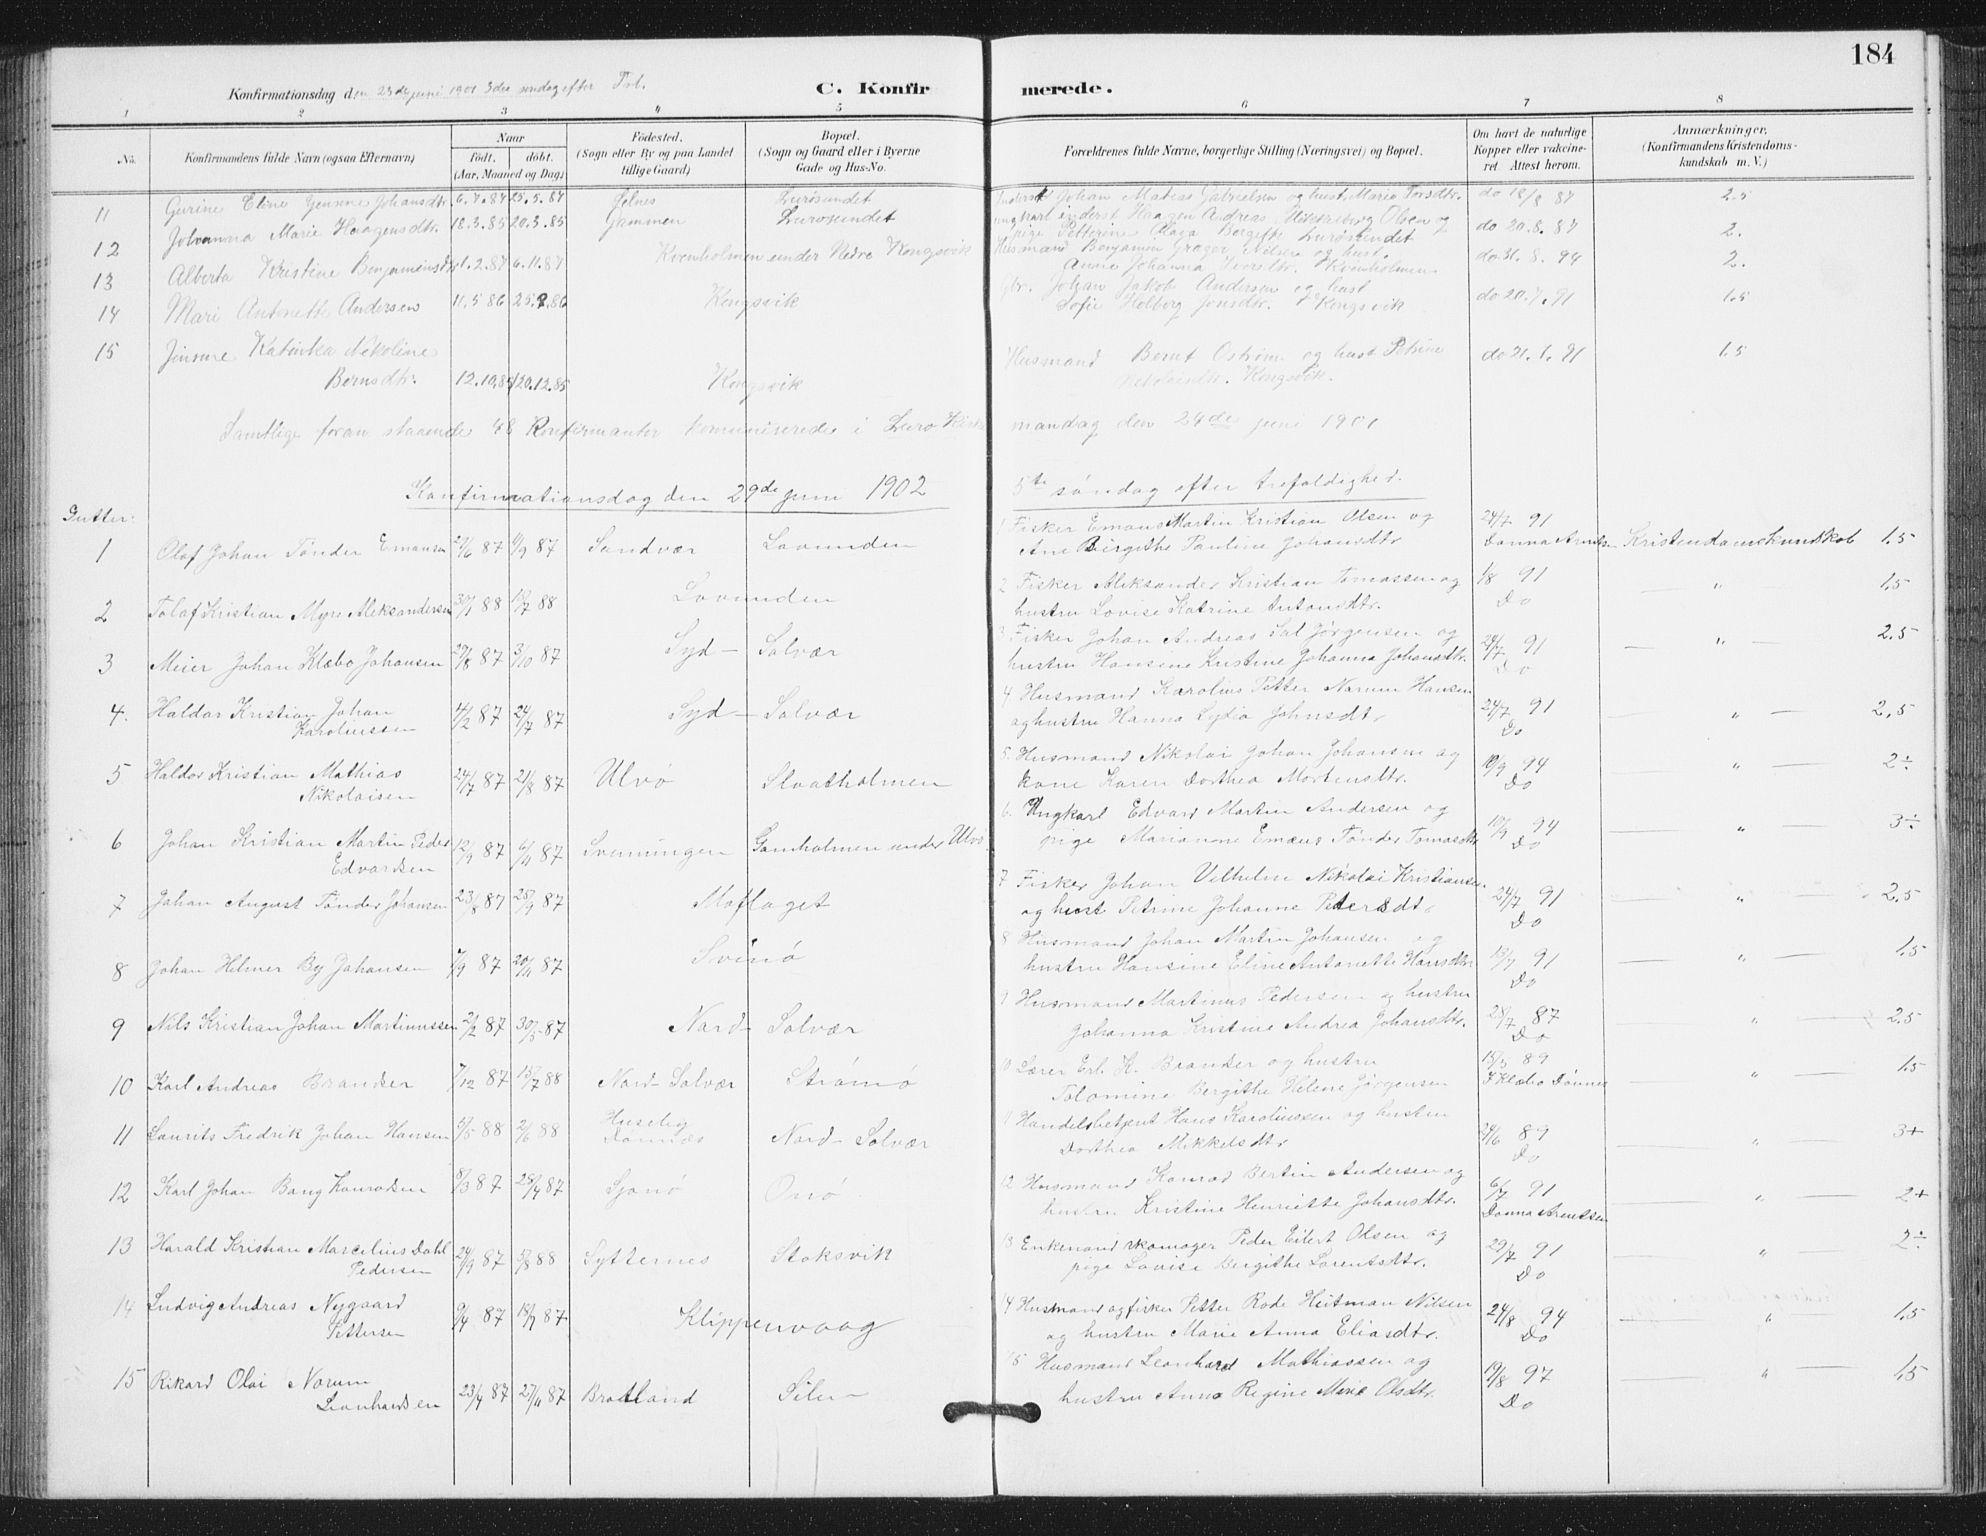 184
Konfirmationsdag den 23de juni 1901 3die søndag efter Tref. C. Konfirmerede.
1 2 3 4 5 6 7 8
No. Konfirmandens fulde Navn (ogsaa Efternavn) Naar født, døbt. (Aar, Maaned og Dag) Fødested. (Sogn eller By og paa Landet tillige Gaard) Bopæl. (Sogn og Gaard eller i Byerne Gade og Hus-No. Forældrenes fulde Navne, borgerlige Stilling (Næringsvei) og Bopæl. Om havt de naturlige Kopper eller vaccineret. Attest herom. Anmærkninger. (Konfirmandens Kristendomskundskab m. V.)
11 Gurine Eline Jensine Johansdtr. 6.7.87 25.5.87 Selnes Lurøsundet Inderst Johan Matias Gabrielsen og hust. Marie do 18/8 87 2.5
12 Johanna Marie Haagensdtr. 18.3.85 20.3.85 Gammen Lurøsundet ungkarl inderst Haagen Andreas Olsen og
pige Petterine Olava Lurøsundet do 20.8.87 2.
13 Alberta Kristine Benjaminsdtr. 1.2.87 6.11.87 Kvenholmen under Nedre Kongsvik Husmand Benjamin Nilsen og hust.
Anne Johanna Iversdtr. Kvenholmen do 31.8.94 2.
14 Mari Antonette Andersen 11.5.86 25.?.86 Kongsvik Gbr. Johan Jakob Andersen og hust
Sofie Holberg Jonsdtr. Kongsvik do 20.7.91 1.5
15 Katinka Nekoline
Berntsdtr. 12.10.85 20.12.85 Kongsvik Husmand Bernt Ostrøm og hust Petrine
Nekolaisdtr. Kongsvik. do 21.1.91 1.5
Samtlige foran staaende 48 Konfirmanter kommuniserede i Lurø Kirke mandag den 24de juni 1901
Konfirmationsdag den 29de juni 1902 5te søndag efter trefoldighed.
Gutter:
1 Olaf Johan Tønder Emausen 27/6 87 4/9 87 Sandvær Lovunden 1 Fisker Emaus Martin Kristian Olsen og
Ane Birgithe Pauline Johansdtr 24/7 91
Danna Arntsen Kristendomskundskob 1.5
2 Tolaf Kristian Myre Aleksandersen 30/1 88 10/7 88 Lovunden 2 Fisker Aleksander Kristian Tomassen og
hustru Lovise Katrine Antonsdtr. 1/8 91
Do " 1.5
3 Meier Johan Klæbo Johansen 29/8 87 3/10 87 Syd - Solvær 3 Fisker Johan Andreas Sal Jørgensen og
hustru Hansine Kristine Johanna Johansdtr. 24/7 91
Do " 2.5
4. Haldor Kristian Johan
Karoliussen 4/2 87 24/7 87 Syd - Solvær 4. Husmand Karolius Petter Narum Hansen
og hustru Hanna Lydia Johnsdtr 24/7 91
Do " 2.5
5 Haldor Kristian Mathias
Nikolaisen 24/7 87 21/8 87 Ulvø Slaatholmen 5. Husmand Nikolai Johan Johansen og
kone Karen Dorthea Mortensdtr. 10/9 94
Do " 2÷
6 Johan Kristian Martin Peder
Edvardsen 12/9 87 6/11 87 Svenningen Gamholmen under Ulvø 6. Ungkarl Edvard Martin Andersen og
pige Marianne Emæus Tønder Tomasdtr 10/9 94
Do " 3÷
7 Johan August Tønder Johansen 23/8 87 25/9 87 Moflaget 7 Fisker Johan Vilhelm Nikolai Kristiansen
og hust Petrine Johanne Petersdtr 24/7 91
Do " 2.5
8 Johan Hilmer By Johansen 7/9 87 20/11 87 Svinø 8 Husmand Johan Martin Johansen og
hustru Hansine Eline Antonette Hansdtr 13/7 91
Do " 1.5
9 Nils Kristian Johan Martinussen 2/2 87 30/5 87 Nord- Solvær 9 Husmand Martinus Pedersen og hustru
Johanna Kristine Andrea Johansdtr. 28/7 87
Do " 2.5
10 Karl Andreas Brandser 7/12 87 15/7 88 Nord- Solvær Strømø 10 Lærer Erl. K. Brandser og hustru
Tolomine Bergithe Helene Jørgensen 15/5 89
J Klæbo Dønnes " 1.5
11 Laurits Fredrik Johan Hansen 5/5 88 2/6 88 Huseby
Dønnæs Nord- Solvær 11 Handelsbetjent Hans Karoliussen og hustru
Dorthea Mikkelsdtr 24/6 89
Do " 3+
12 Karl Johan Bang Konradsen 8/3 87 25/4 87 Sjonø Onø 12 Husmand Konrad Bertin Andersen og
hustru Kristine Henriette Johansdtr. 6/7 91
Danna Arentsen " 2+
13 Harald Kristian Marcelius Dahl
Pedersen 24/9 87 5/8 88 Sytternes Stoksvik 13 Enkemand skomager Peder Eilert Olsen og
pige Lovise Bergithe Lorentsdtr. 29/7 91
Do " 2÷
14 Ludvig Andreas Nygaard
Pettersen 9/4 87 18/7 87 Klippenvaag 14 Husmand og fisker Petter Rode Heitman Nilsen
og hustru Marie Anna Eliasdtr. 24/8 94
Do " 1.5
15 Rikard Olai Norum
Leonhardsen 23/4 87 27/11 87 Bratland Silen 15 Husmand Leonhard Mathiassen og
hustru Anna Regine Marie Olsdtr. 19/8 97
Do " 1.5